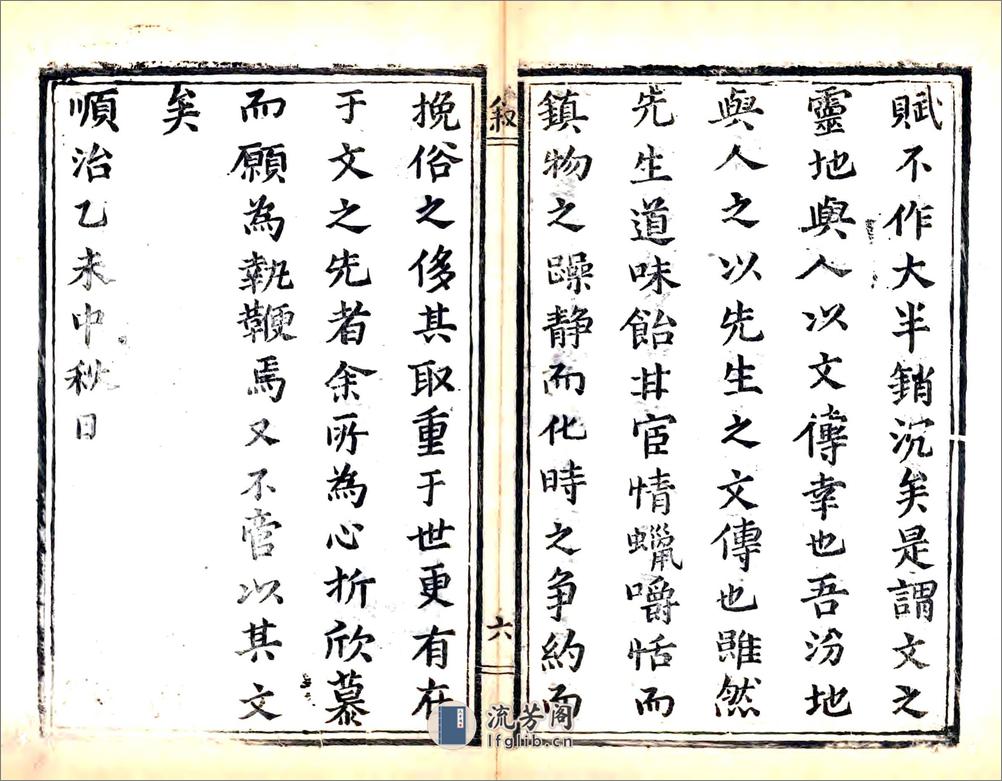 賦不作大半銷沉矣是謂文之
靈地與人以文傳幸也吾汾地
與人之以先生之文傳也雖然
先生道味飴甘宦情蠟嚼恬而
鎮物之躁静而化時之争約而
叙
六
挽俗之侈其取重于世更有在
于文之先者余所為心折欣慕
而願為執鞭焉又不啻以其文
矣
順治乙未中秋日
流芳阁
lfglib.cn